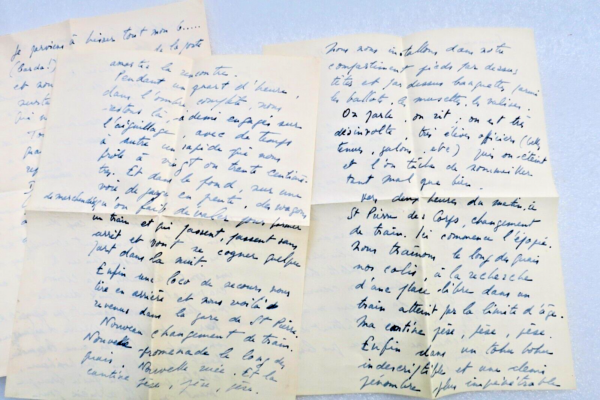 Je parviens à hisser tout mon b.....
de la porte
et nous
amortes la rencontre.
Pendant un quart d'heure,
dans l'ombre complète, nous
restons là, à demi engagés sur
l'aiguillage, avec de temps
à autre un rapide qui nous
frôle à vingt ou trente centimè-
tres. Et dans le fond, sur une
voie de garage en pente, des wagons
de marchandises qu'on fait
un train et qui passent, passent sans
arrêt et vont se cogner quelque
part dans la nuit.
Enfin une loco de secours nous
tire en arrière et nous voilà
revenus dans la gare de St Pierre.
Nouveau changement de train.
Nouvelle promenade le long des
quais. Nouvelle ruée. Et la
cantine pèse, pèse, pèse.
Nous nous installons dans notre
compartiment pieds par dessus
têtes et par dessus banquettes, parmi
les ballots, les musettes, les valises.
On parle, on rit, on est très
désinvolte, très élèves officiers (
tenues, galons, etc) puis on s'étend
et l'on tâche de sommeiller
tant mal que bien.
Vers deux heures du matin, à
St Pierre des Corps, changement
de train. Ici commence l'épopée.
Nous traînons le long des quais
nos colis, à la recherche
d'une place libre dans un
train atteint par la limite d'âge.
Ma cantine pèse, pèse, pèse.
Enfin dans un tohu bohu
indescriptible et une demi
pénombre plus impénétrable